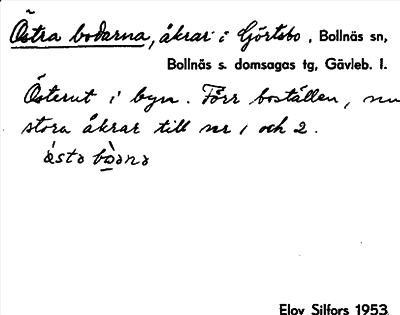 Östra bodarna, åkrar i Gjörtsbo, Bollnäs sn,
Bollnäs s. domsagas tg, Gävleb. l.
Österut i byn. Förr boställen, nu
stora åkrar till nr 1 och 2.
Elov Silfors 1953.